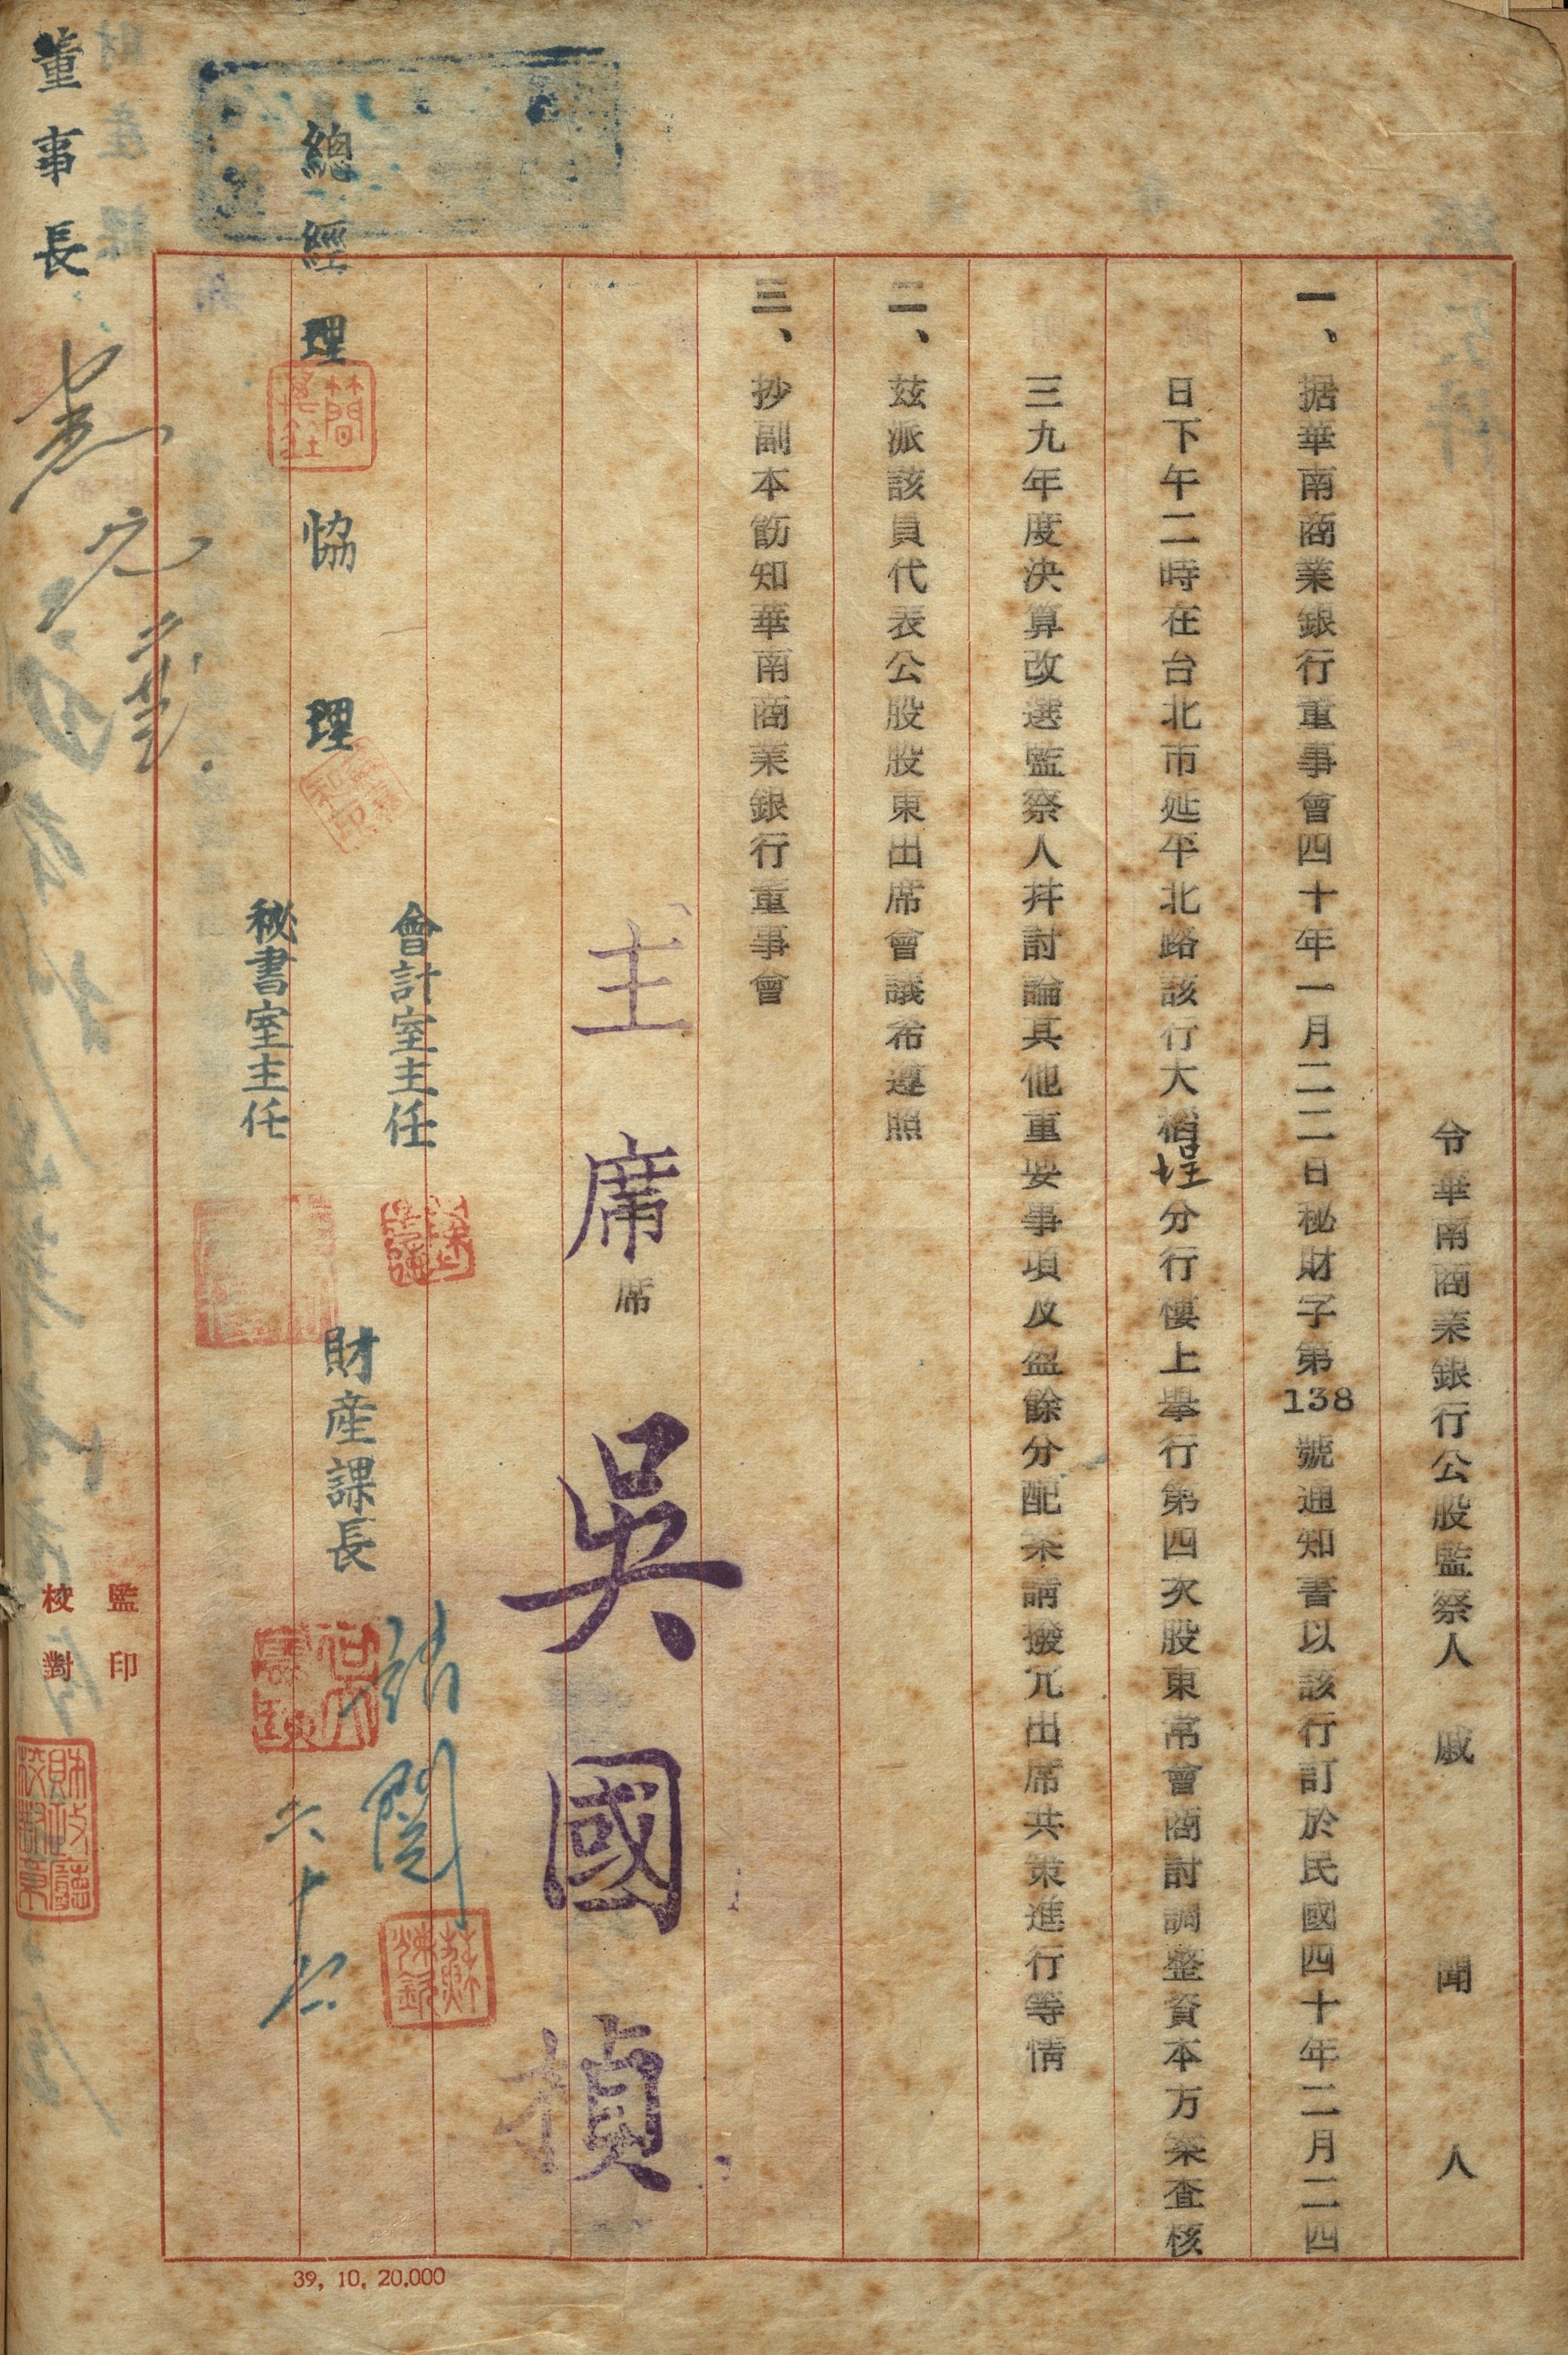 令華南商業銀行公股監察人 戚聞人
一、据華南商業銀行董事會四十年一月二二日秘財字第138號通知書以該行訂於民國四十年二月二四
日下午二時在台北市延平北路該行大稻埕分行樓上舉行第四次股東常會商討調整資本方案查核
三九年度決算改選監察人并討論其他重要事項及盈餘分配案請撥冗出席共策進行等情
二、玆派該員代表公股股東出席會議布遵照
三、抄副本飭知華南商業銀行董事會
主席 吳國楨
席
會計室主任
財產課長
總經理
協理
秘書室主任
董事長
監印
校對
財政廳校對章
39, 10, 20.000